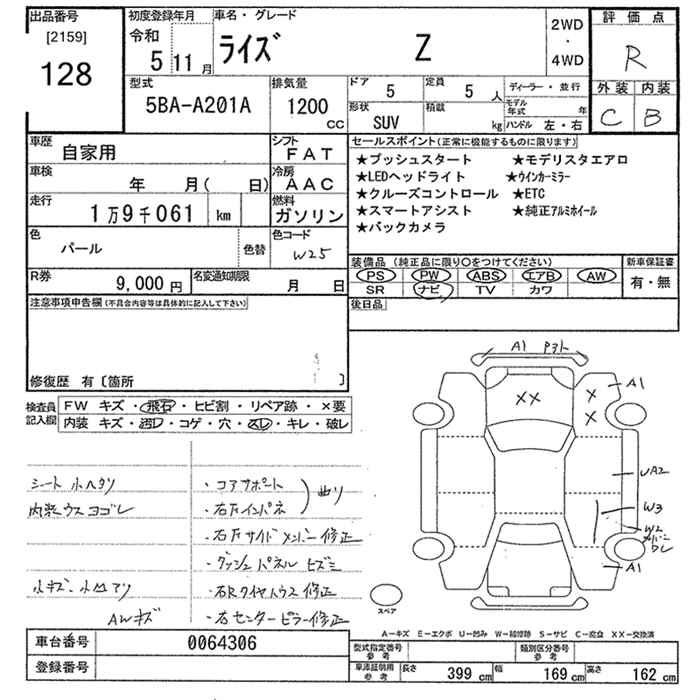 出品番号
[2159]
128
初度登録年月
令和
5 11 月
車名・グレード
ライズ Z
2WD
・
4WD
評価点
R
外装 内装
C B
型式
5BA-A201A
排気量
1200
CC
ドア
5
定員
5 人
ディーラー・並行
形状
SUV
積載
kg
モデル年式 年
ハンドル 左・右
車歴
自家用
シフト
FAT
車検
年 月( 日)
冷房
AAC
走行
1万9千061 km
燃料
ガソリン
色
パール
色替
色コード
W25
R券
9,000 円
名変通知期限
月 日
セールスポイント(正常に機能するものに限ります)
★プッシュスタート ★モデリスタエアロ
★LEDヘッドライト ★ウインカーミラー
★クルーズコントロール ★ETC
★スマートアシスト ★純正アルミホイール
★バックカメラ
装備品(純正品に限り○をつけてください)
PS PW ABS エアB AW
SR ナビ TV カワ
新車保証書
有・無
後日品
注意事項申告欄(不具合内容等は具体的に記入して下さい)
修復歴 有〔箇所 〕
検査員記入欄
FW キズ・飛石・ヒビ割・リペア跡・×要
内装 キズ・汚レ・コゲ・穴・スレ・キレ・破レ
シート 小ヘタリ
内装ウスヨゴレ
小キズ、小凹アリ
AWキズ
・コアサポート
・右Fインパネ
曲リ
・右Fサイドメンバー修正
・ダッシュパネルヒズミ
・右Rタイヤハウス修正
・右センターピラー修正
A1
××
×
×
A1
UA2
W3
W2
A1
スペア
A-キズ E-エクボ U-凹み W-補修跡 S-サビ C-腐食 XX-交換済
車台番号
0064306
登録番号
型式指定番号
参考
類別区分番号
参考
車添証明用
参考
長さ 399 cm 幅 169 cm 高さ 162 cm